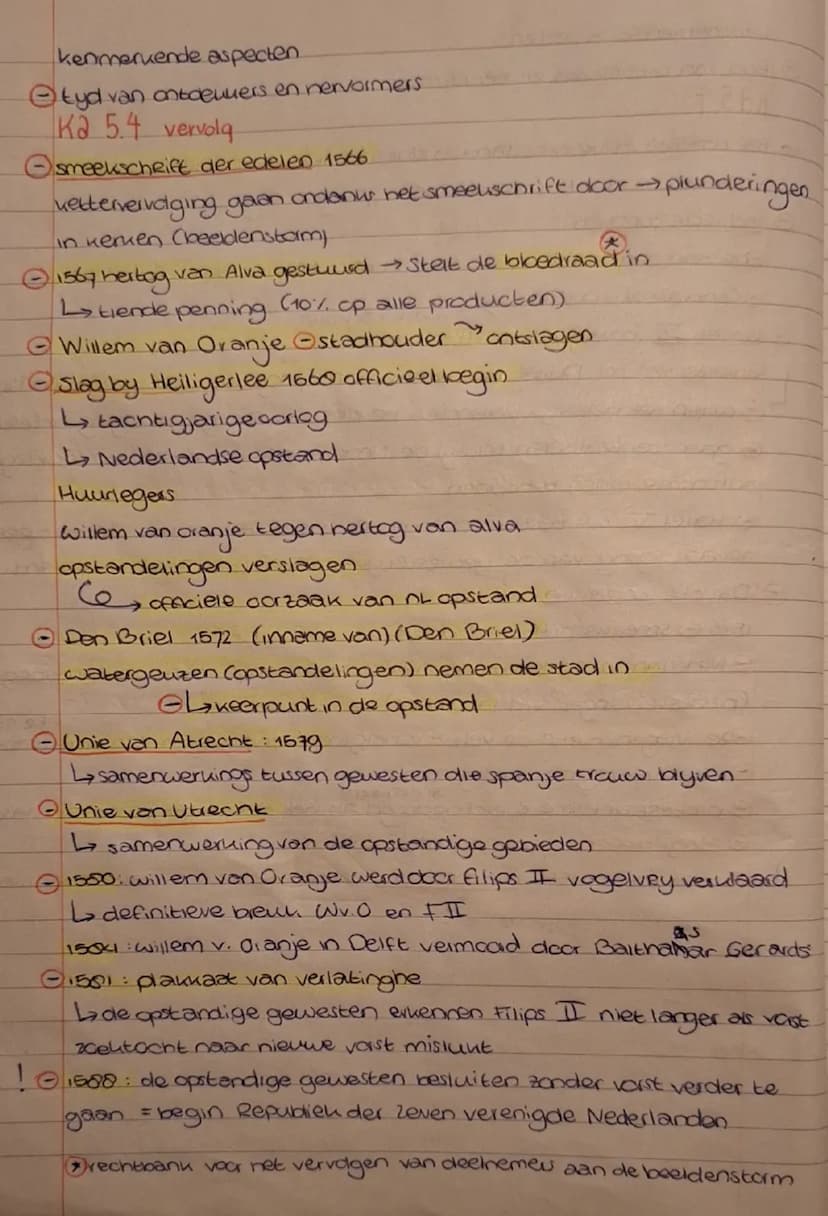 kenmerkende aspecten
⊖ tyd van ontdekkers en hervormers
Ka 5.4 vervolg
⊖ smeekschrift der edelen 1566
kettervervolging gaan ondanks het smeekschrift door → plunderingen
in kerken (beeldenstorm)
⊖ 1567 hertog van Alva gestuurd → stelt de bloedraad * in
↳ tiende penning (10% op alle producten)
⊖ Willem van Oranje ⊖ stadhouder → ontslagen
⊖ Slag by Heiligerlee 1568 officieel begin
↳ tachtigjarige oorlog
↳ Nederlandse opstand
Huurlegers
Willem van oranje tegen hertog van alva
opstandelingen verslagen
↳ officiele oorzaak van NL opstand
⊖ Den Briel 1572 (inname van) (Den Briel)
watergeuzen (opstandelingen) nemen de stad in
⊖ ↳ keerpunt in de opstand
⊖ Unie van Atrecht : 1579
↳ samenwerkings tussen gewesten die spanje trouw blyven
⊖ Unie van Utrecht
↳ samenwerking van de opstandige gebieden
⊖ 1580: willem van Oranje werd door Filips II vogelvry verklaard
↳ definitieve breuk Wv.O en FII
1584 : willem v. Oranje in Delft vermoord door Balthasar Gerards
⊖ 1581 : plakkaat van verlatinghe
↳ de opstandige gewesten erkennen Filips II niet langer als vorst
zoektocht naar nieuwe vorst mislukt
! ⊖ 1588 : de opstandige gewesten besluiten zonder vorst verder te
gaan = begin Republiek der Zeven verenigde Nederlanden
* rechtbank voor het vervolgen van deelnemers aan de beeldenstorm